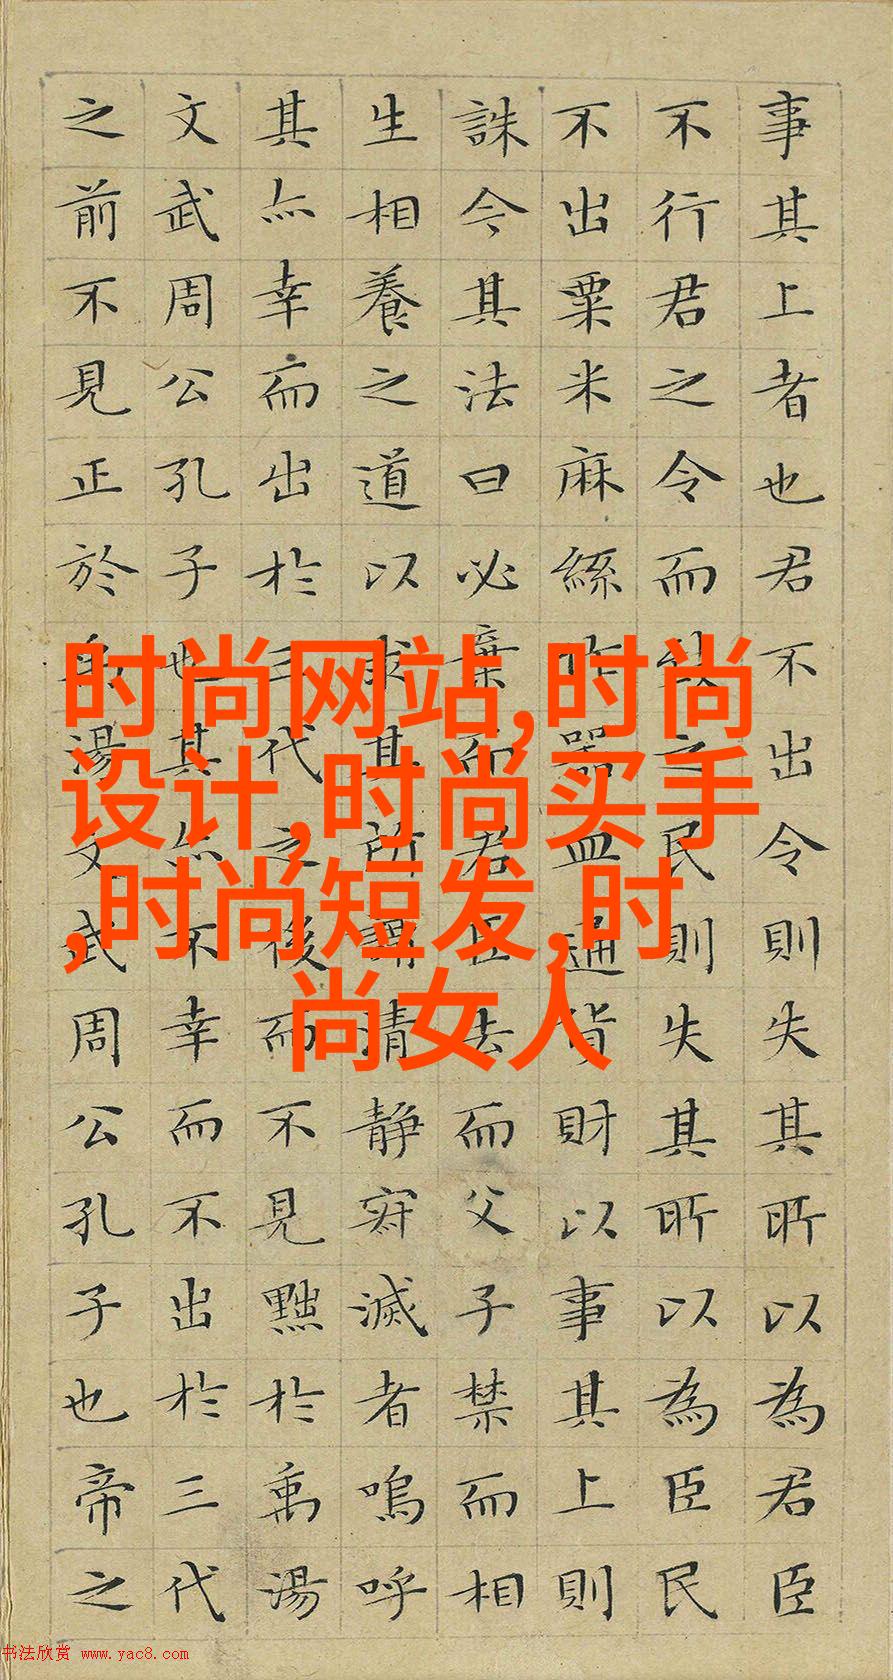 事其上者也君不出令則失其所以為君臣
不行君之令而致之民則失其所以為臣民
不出粟米麻絲作器皿通貨財以事其上則
誅今其法曰必棄而君臣去而父子禁而相
生相養之道以求其所謂清静寂滅者嗚呼
其亦幸而出於三代之後而不見黜於禹湯
文武周公孔子也其亦不幸而不出於三代
之前不見正於禹湯文武周公孔子也帝之
时尚网站,时尚
设计,时尚买手
,时尚短发,时
尚女人
书法欣赏 www.yac8.com